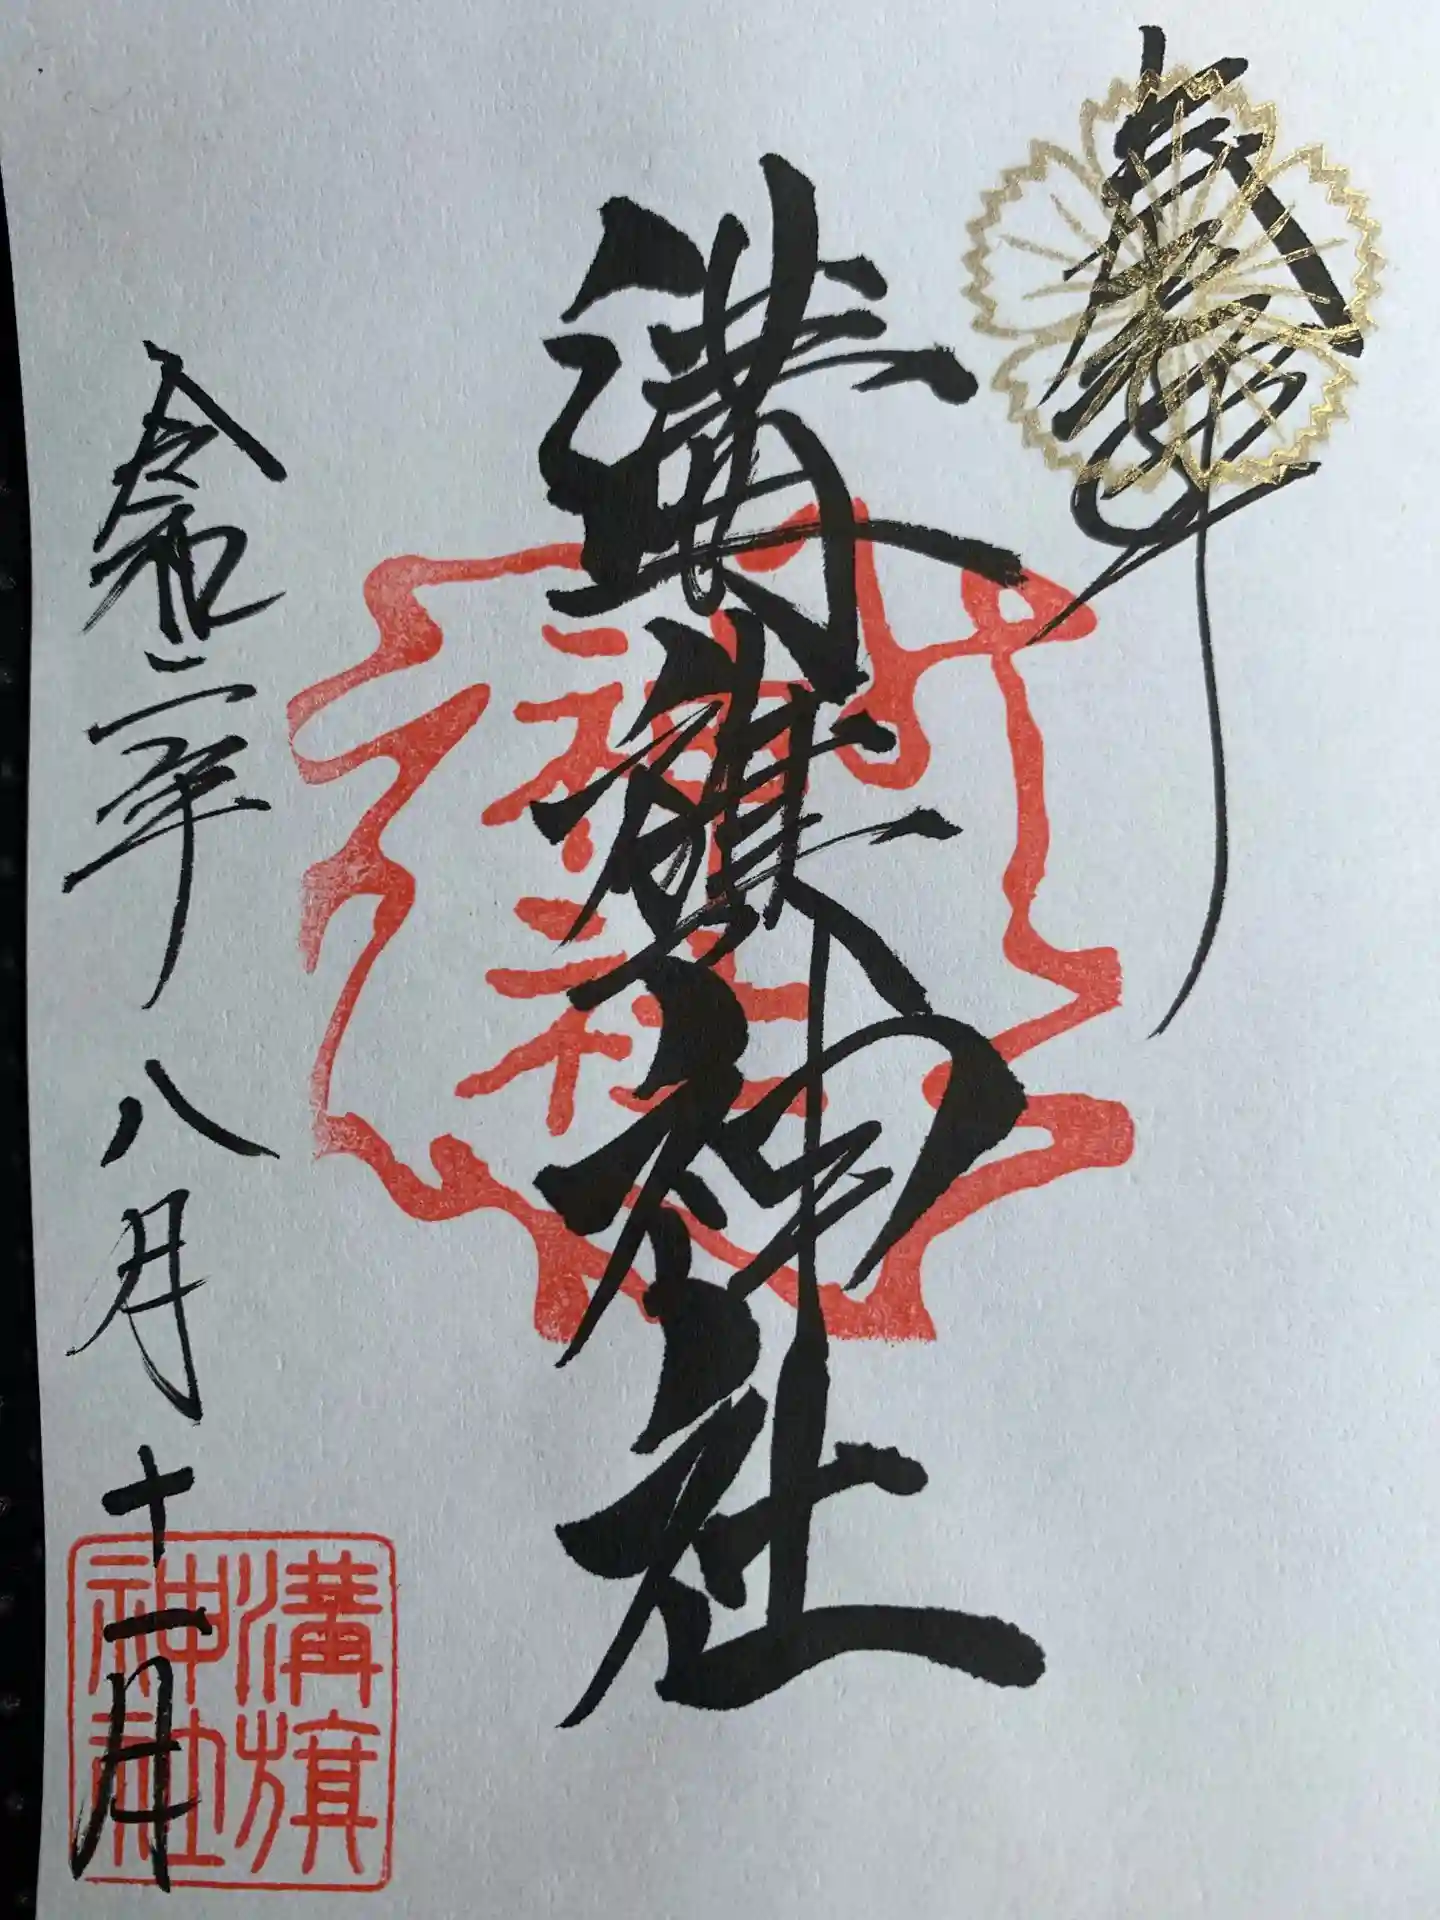 奉拝
溝旗神社
神社
令和二年八月十一日
溝旗
神社